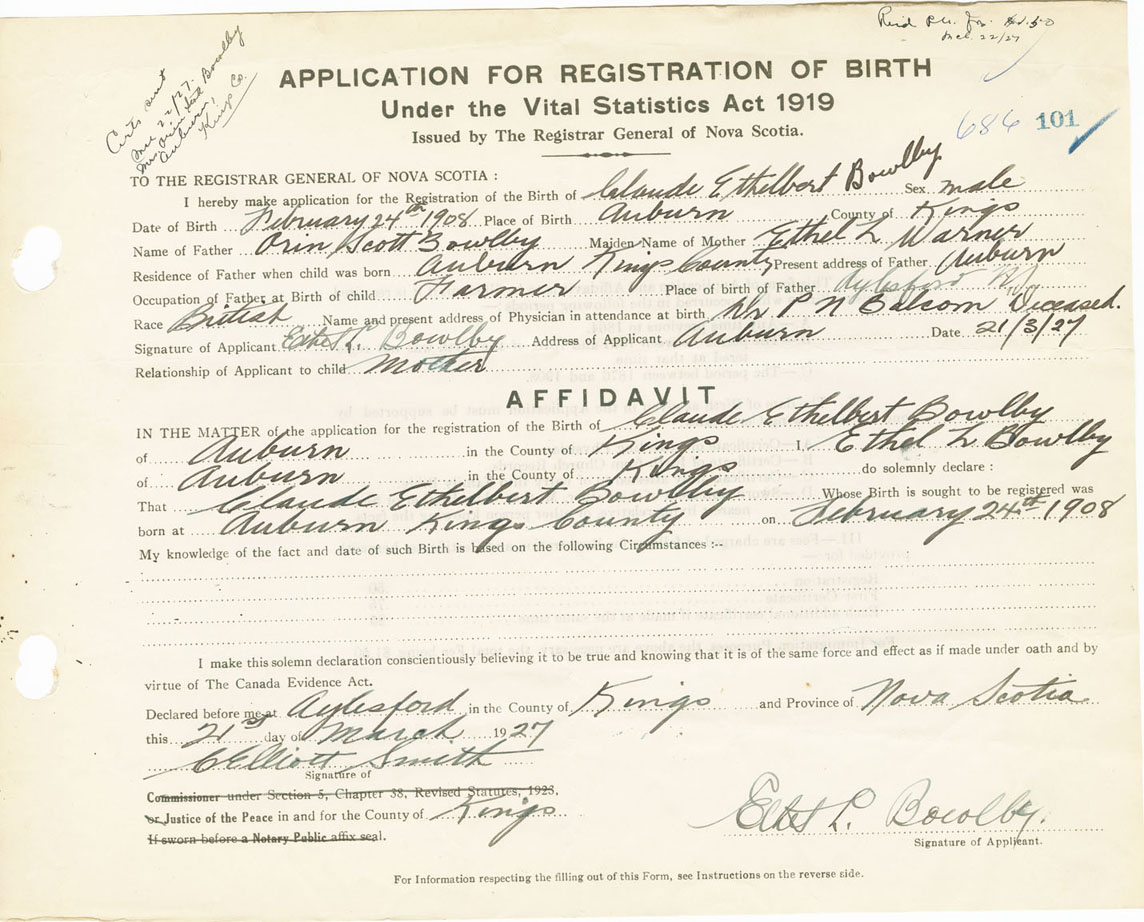 Certs sent
Mar 22/27.
Mrs Orin Scott Bowlby
Auburn,
Kings Co.
Mar. 22/27
APPLICATION FOR REGISTRATION OF BIRTH
Under the Vital Statistics Act 1919
Issued by The Registrar General of Nova Scotia.
686 101
TO THE REGISTRAR GENERAL OF NOVA SCOTIA :
I hereby make application for the Registration of the Birth of Claude Ethelbert Bowlby Sex male
Date of Birth February 24th 1908 Place of Birth Auburn County of Kings
Name of Father Orin Scott Bowlby Maiden Name of Mother Ethel L Warner
Residence of Father when child was born Auburn Kings County Present address of Father Auburn
Occupation of Father at Birth of child Farmer Place of birth of Father Aylesford N.S
Race British Name and present address of Physician in attendance at birth Dr P N Balcom Deceased.
Signature of Applicant Ethel L. Bowlby Address of Applicant Auburn Date 21/3/27
Relationship of Applicant to child Mother
AFFIDAVIT
IN THE MATTER of the application for the registration of the Birth of Claude Ethelbert Bowlby
of Auburn in the County of Kings I, Ethel L Bowlby
of Auburn in the County of Kings do solemnly declare :
That Claude Ethelbert Bowlby Whose Birth is sought to be registered was
born at Auburn Kings County on February 24th 1908
My knowledge of the fact and date of such Birth is based on the following Circumstances :--
I make this solemn declaration conscientiously believing it to be true and knowing that it is of the same force and effect as if made under oath and by
virtue of The Canada Evidence Act.
Declared before me at Aylesford in the County of Kings and Province of Nova Scotia
this 21st day of March 1927
C Elliott Smith
Signature of
Commissioner under Section 5, Chapter 38, Revised Statutes, 1923,
or Justice of the Peace in and for the County of Kings
If sworn before a Notary Public affix seal.
Ethel L. Bowlby.
Signature of Applicant.
For Information respecting the filling out of this Form, see Instructions on the reverse side.